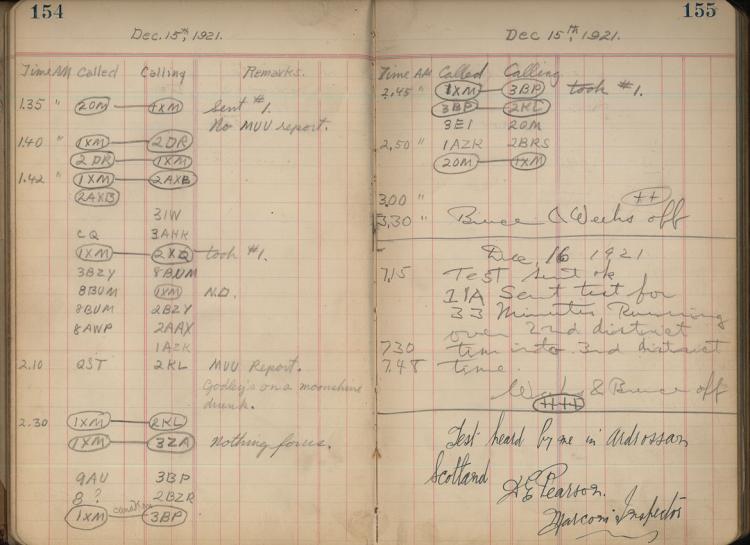 154
Dec. 15th, 1921.
Time AM Called Calling Remarks.
1.35 " 2OM 1XM Sent #1.
No MUU report.
1.40 " 1XM 2DR
2DR 1XM
1.42 " 1XM 2AXB
2AXB
3IW
CQ 3AHK
1XM 2XQ took #1.
3BZY 8BUM
8BUM 1XM N.D.
8BUM 2BZY
8AWP 2AAX
1AZK
2.10 QST 2KL MUU Report.
Godley's on a moonshine
drunk.
2.30 1XM 2KL
1XM 3ZA Nothing for us.
9AU 3BP
8 ? 2BZR
1XM 3BP
155
Dec 15th, 1921.
Time AM Called Calling
2.45 " 1XM 3BP took #1.
3BP 2KL
3EI 2OM
2,50 " 1AZK 2BRS
2OM 1XM
3.00 "
3,30 " Bruce & Weeks off
Dec, 16 1921
7,15 Test sent ok
1IA Sent test for
33 Minutes Running
over 2nd district
730 time into 3rd district
7.48 time.
Weeks & Bruce off
Test heard by me in Ardrossan
Scotland
Pearson.
Marconi Inspector